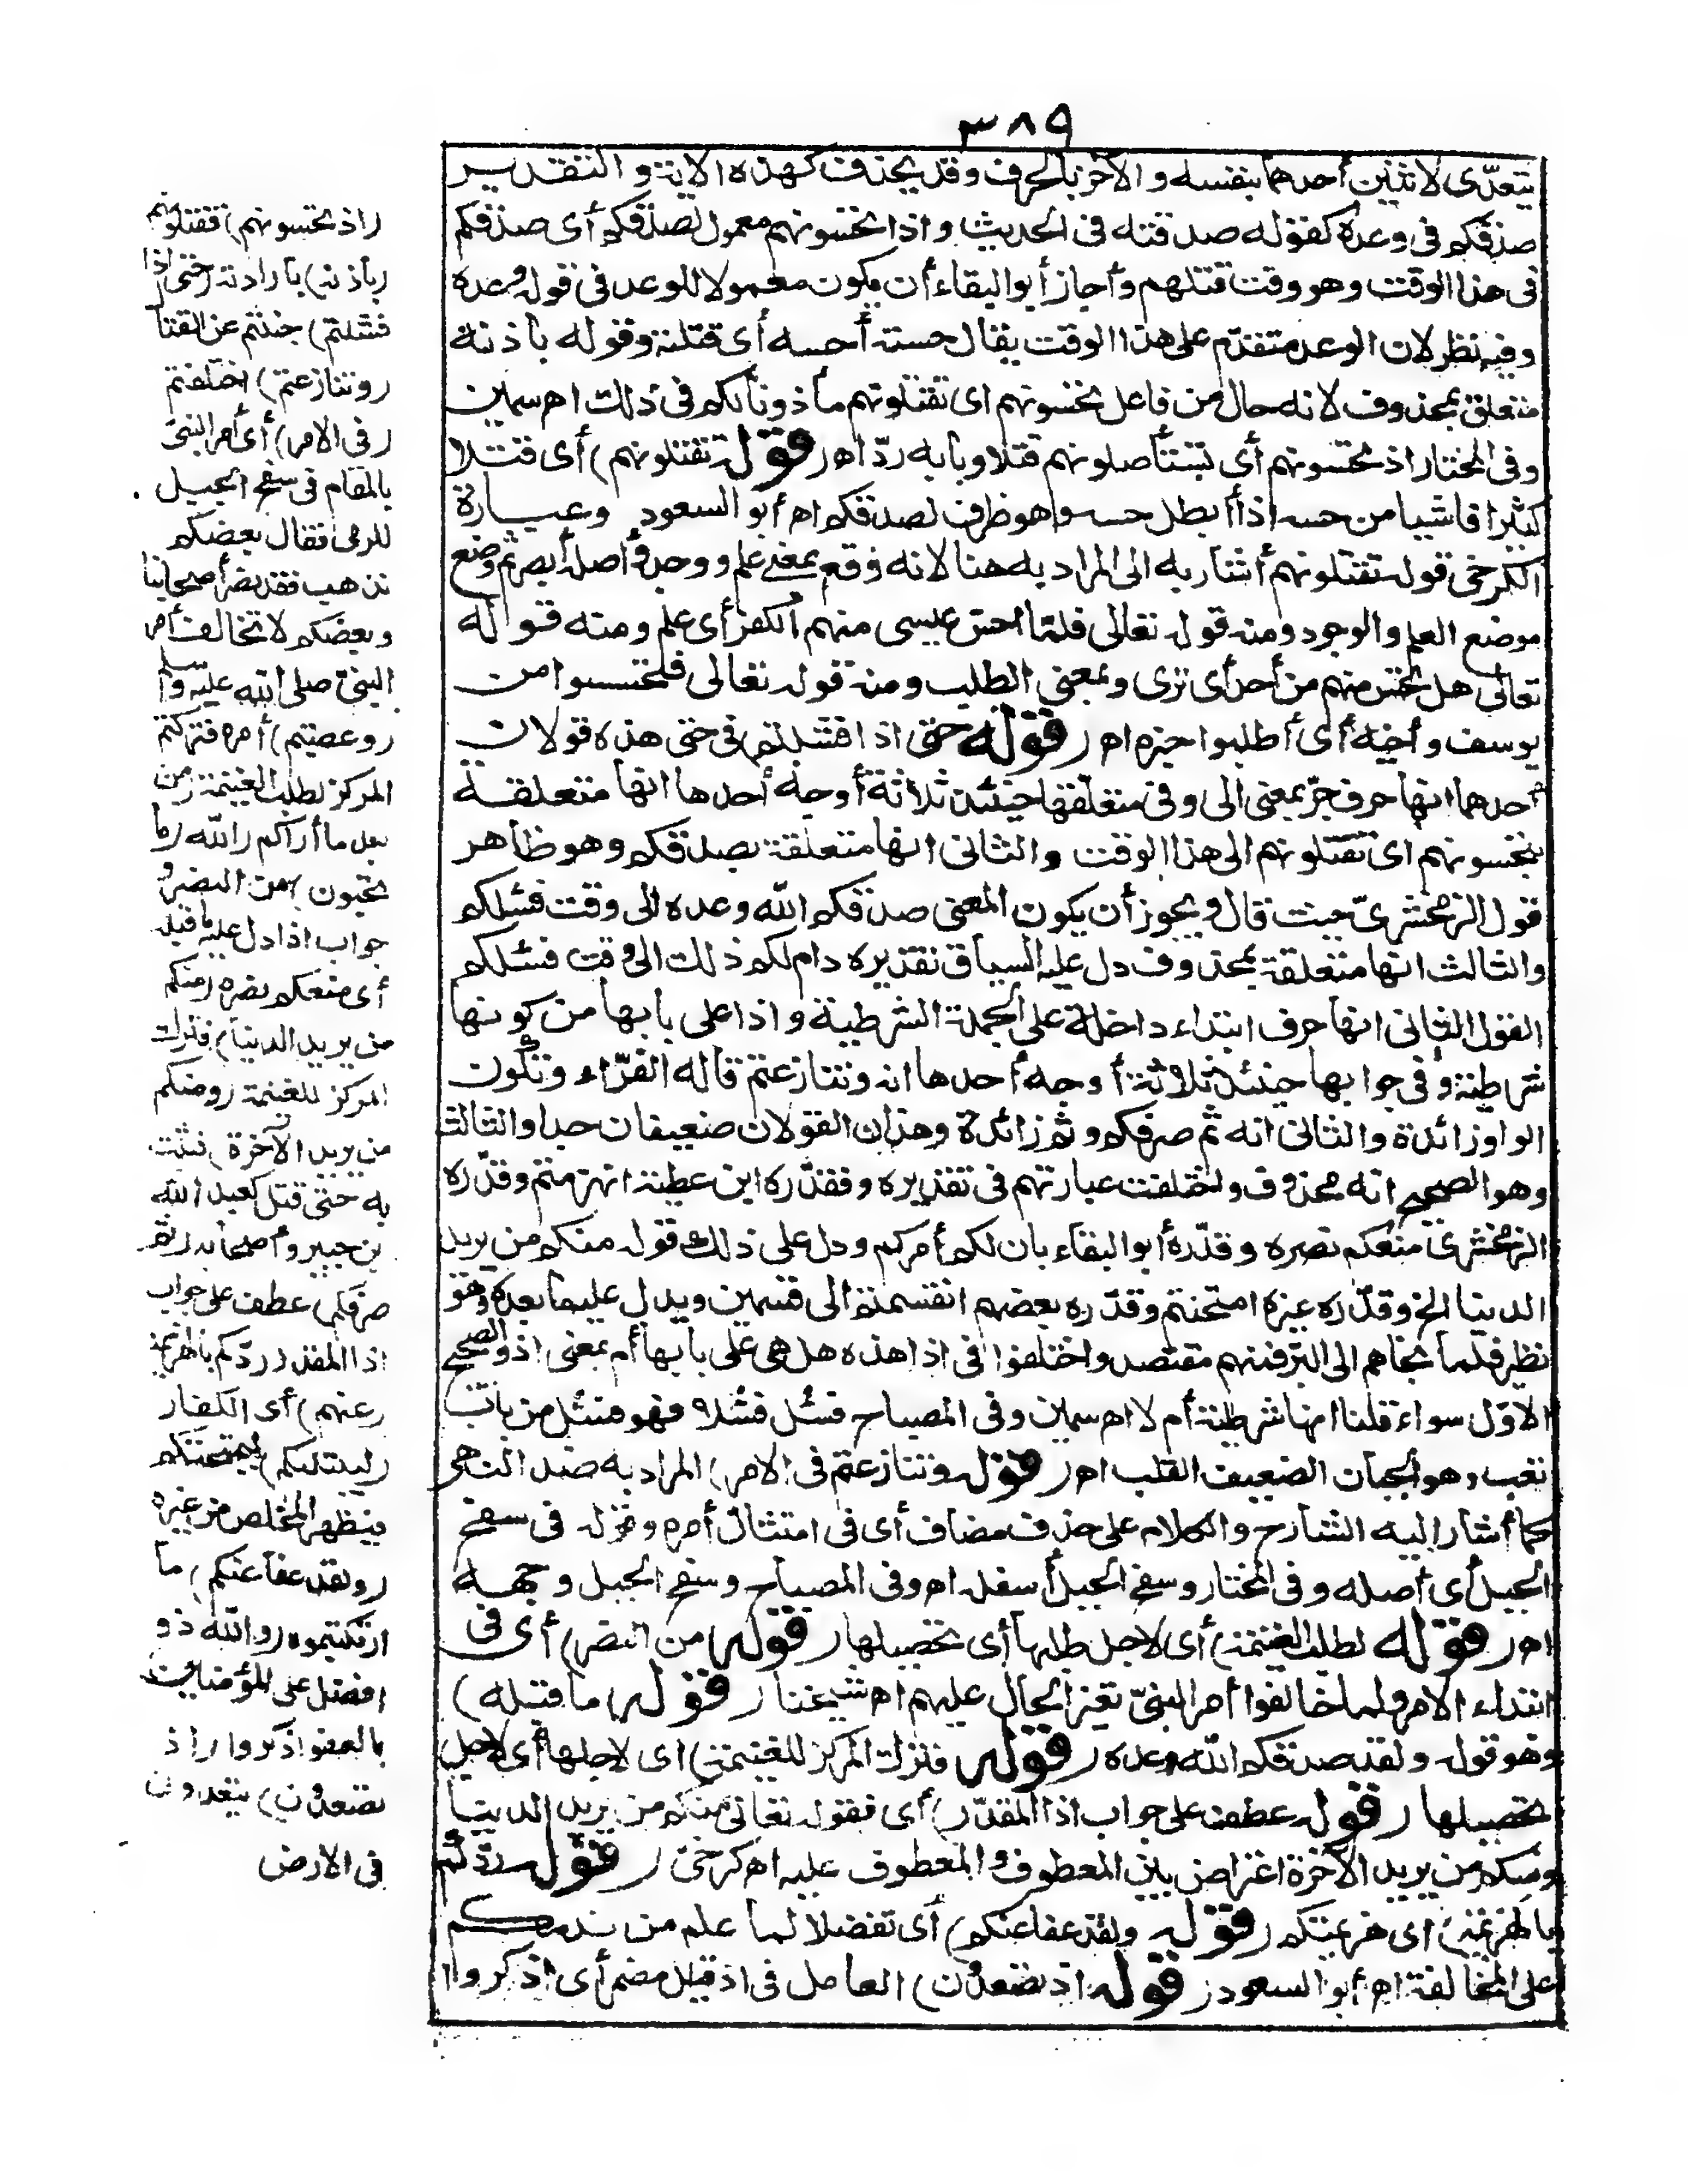 ٣٨٩
يتعدّى لاثنين أحدهما بنفسه والآخر بالحرف وقد يحذف كهذه الآية والتقدير
صدقكم في وعده كقوله صدقته في الحديث واذ تحسونهم معمول لصدقكم أى صدقكم
فى هذا الوقت وهو وقت قتلهم وأجاز أبو البقاء أن يكون معمولا للوعد فى قوله وعده
وفيه نظر لان الوعد متقدّم على هذا الوقت يقال حسته أحسه أى قتلته وقوله باذنه
متعلق بمحذوف لانه حال من فاعل تحسونهم اى تقتلونهم مأذونا لكم فى ذلك اه سمين
وفى المختار اذ تحسونهم أى تستأصلونهم قتلا وبابه ردّ اه (قوله تقتلونهم) أى قتلا
كثيرا فاشيا من حسه اذا أبطل حسه وهو ظرف لصدقكم اه أبو السعود وعبارة
الكرخى قوله تقتلونهم أشار به الى المراد به هنا لانه وقع بمعنى علم ووجد وأصله أبصر ثم وضع
موضع العلم والوجود ومنه قوله تعالى فلمّا احسّ عيسى منهم الكفر أى علم ومنه قوله
تعالى هل تحسّ منهم من أحد أى ترى وبمعنى الطلب ومنه قوله تعالى فتحسسوا من
يوسف وأخيه أى أطلبوا خبره اه (قوله حتى اذا فشلتم) فى حتى هذه قولان
أحدهما انها حرف جرّ بمعنى الى وفى متعلقها حينئذ ثلاثة أوجه أحدها انها متعلقة
بتحسونهم اى تقتلونهم الى هذا الوقت والثانى انها متعلقة بصدقكم وهو ظاهر
قول الزمخشرىّ حيث قال ويجوز أن يكون المعنى صدقكم الله وعده الى وقت فشلكم
والثالث انها متعلقة بمحذوف دل عليه السياق تقديره دام لكم ذلك الى وقت فشلكم
القول الثانى انها حرف ابتداء داخلة على الجملة الشرطية واذا على بابها من كونها
شرطية وفى جوابها حينئذ ثلاثة أوجه أحدها انه وتنازعتم قاله الفرّاء وتكون
الواو زائدة والثانى انه ثم صرفكم وثم زائدة وهذان القولان ضعيفان جدا والثالث
وهو الصحيح انه محذوف واختلفت عبارتهم فى تقديره وفقدّره ابن عطية انهزمتم وقدّره
الزمخشرىّ منعكم نصره وقدّره أبو البقاء بان لكم أمركم ودل على ذلك قوله منكم من يريد
الدنيا الخ وقدّره غيره امتحنتم وقدّره بعضهم انقسمتم الى قسمين ويدل عليه ما بعده وهو
نظير فلما نجاهم الى البرّ فمنهم مقتصد واختلفوا فى اذا هذه هل هى على بابها أم بمعنى اذ والصحيح
الاوّل سواء قلنا انها شرطية أم لا اه سمين وفى المصباح فشل فشلا فهو فشل من باب
تعب وهو الجبان الضعيف القلب اه (قوله وتنازعتم فى الامر) المراد به ضد النهى
كما أشار اليه الشارح والكلام على حذف مضاف أى فى امتثال أمره وقوله فى سفح
الجبل أى أصله وفى المختار وسفح الجبل أسفله اه وفى المصباح وسفح الجبل وجهه
اه (قوله لطلب الغنيمة) أى لاجل طلبها أى تحصيلها (قوله من النصر) أى فى
ابتداء الامر ولما خالفوا أمر النبىّ تغير الحال عليهم اه شيخنا (قوله ما قبله)
وهو قوله ولقد صدقكم الله وعده (قوله فترك المركز للغنيمة) اى لاجلها أى لاجل
تحصيلها (قوله عطف على جواب اذا المقدّر) أى فقوله تعالى منكم من يريد الدنيا
ومنكم من يريد الآخرة اعتراض بين المعطوف والمعطوف عليه اه كرخىّ (قوله ردّكم
بالهزيمة) اى هزيمتكم (قوله ولقد عفا عنكم) أى تفضلا لما علم من ندمكم
على المخالفة اه أبو السعود (قوله اذ تصعدون) العامل فى اذ قيل مضمر أى اذكروا
(اذ تحسونهم) تقتلونهم
(باذنه) بارادته (حتى اذا
فشلتم) جبنتم عن القتال
(وتنازعتم) اختلفتم
(فى الامر) أى أمر النبىّ
بالمقام فى سفح الجبل
للرمى فقال بعضكم
نذهب فقد نصر أصحابنا
وبعضكم لا نخالف أمر
النبىّ صلى الله عليه وسلم
(وعصيتم) أمره فتركتم
المركز لطلب الغنيمة (من
بعد ما أراكم) الله (ما
تحبون) من النصر و
جواب اذا دل عليه ما قبله
أى منعكم نصره (منكم
من يريد الدنيا) فترك
المركز للغنيمة (ومنكم
من يريد الآخرة) فثبت
به حتى قتل كعبد الله
بن جبير وأصحابه (ثم
صرفكم) عطف على جواب
اذا المقدر ردّكم بالهزيمة
(عنهم) أى الكفار
(ليبتليكم) ليمتحنكم
فيظهر المخلص من غيره
(ولقد عفا عنكم) ما
ارتكبتموه (والله ذو
افضل على المؤمنين)
بالعفو اذكروا (اذ
تصعدون) تبعدون
فى الارض